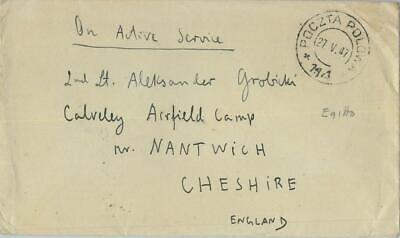 On Active Service
POCZTA POLOWA
27 V. 47
* 114
2nd Lt. Aleksander Grobicki
Calveley Airfield Camp
Egitto
nr. NANTWICH
CHESHIRE
ENGLAND